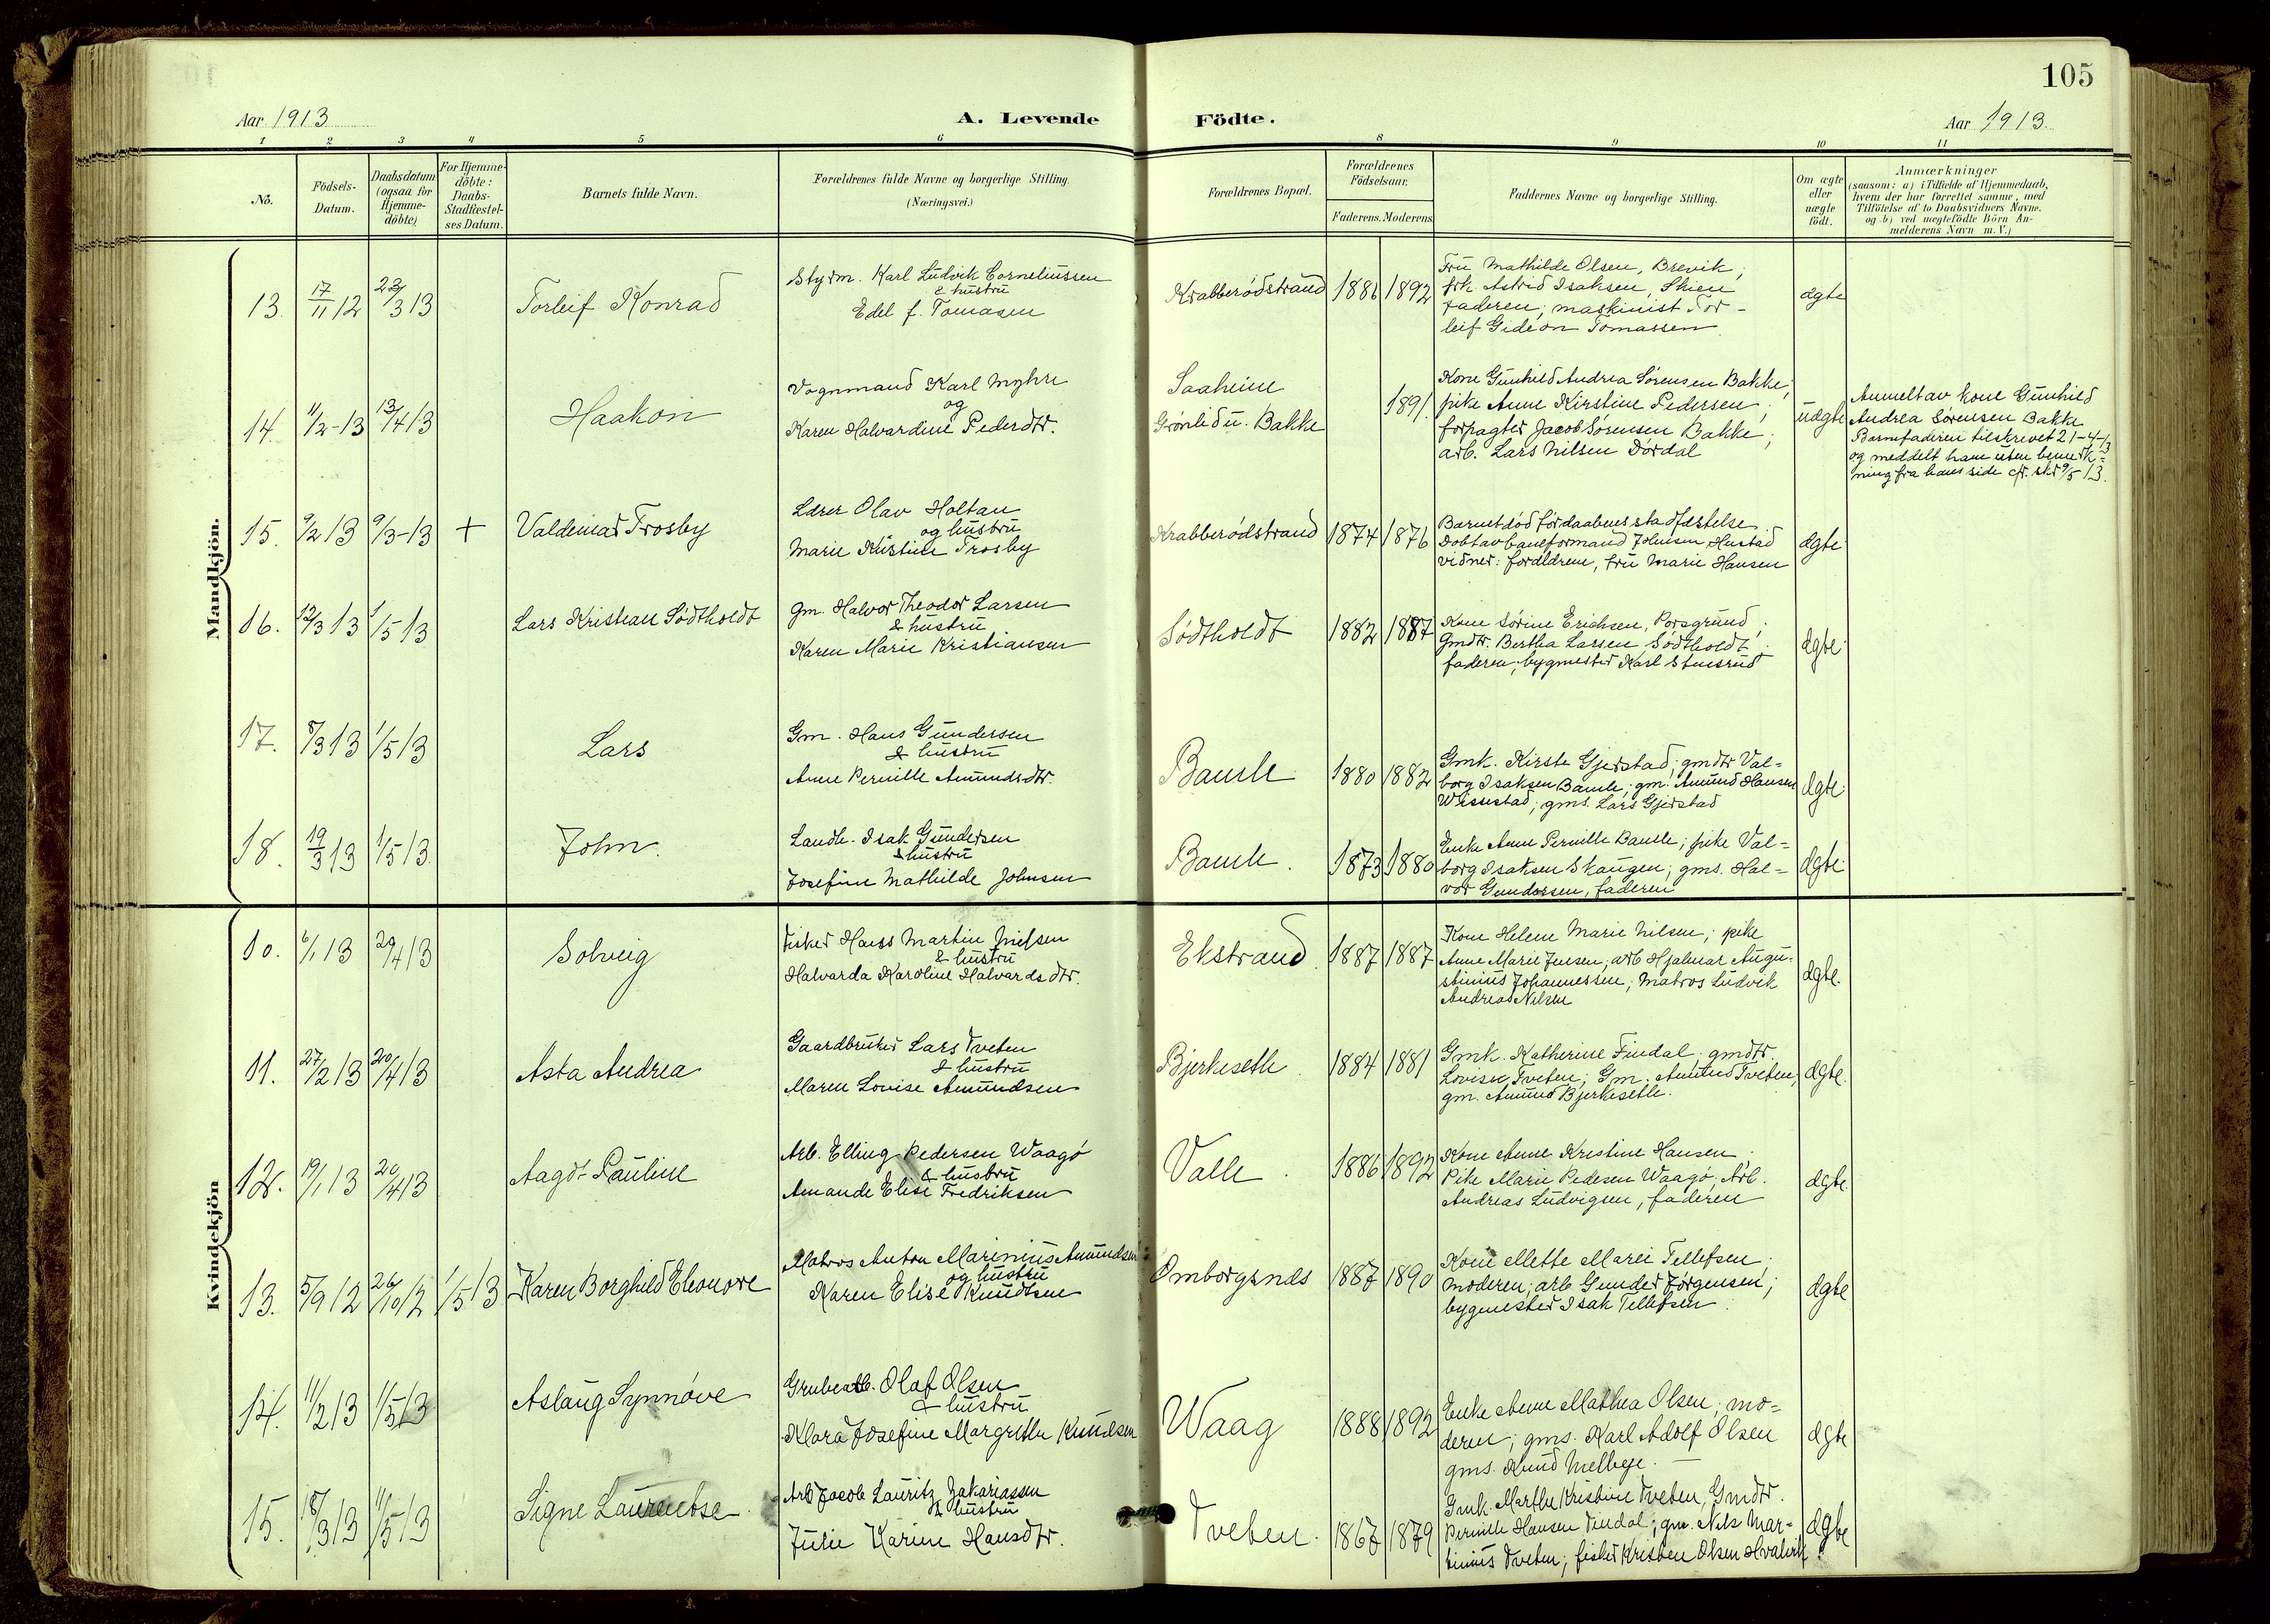 105
Aar 1913
A. Levende
Födte.
Aar 1913.
1 2 3 4 5 6 8 9 10 11
No.
Födsels-
Datum.
Daabsdatum
(ogsaa for
Hjemme-
döbte)
For Hjemme-
döbte:
Daabs-
Stadfæstel-
ses Datum.
Barnets fulde Navn.
Forældrenes fulde Navne og borgerlige Stilling.
(Næringsvei.)
Forældrenes Bopæl.
Forældrenes
Födselsaar.
Faderens. Moderens.
Faddernes Navne og borgerlige Stilling.
Om ægte
eller
uægte
födt.
Anmærkninger
(saasom: a) i Tilfælde af Hjemmedaab,
hvem der har forrettet samme, med
Tilföielse af to Daabsvidners Navne.
og b) ved uægtefödte Börn An-
melderens Navn m. V.)
Mandkjön.
13. 17/11 12 22/3 13
Torleif Konrad
Styrm. Karl Ludvik Corneliussen
& hustru
Edel f. Tomasen
Krabberødstrand 1886 1892
Fru Mathilde Olsen, Brevik;
frk. Astrid Isaksen, Skien
Faderen; maskinist Tor-
leif Gideon Tomassen
ægte
14. 11/2-13 13/4 13
Haakon
Vognmand Karl Myhre
og
Karen Halvardine Pedersdtr.
Saaheim
Grønlid u. Bakke
1891.
Kone Gunhild Andrea Sørensen Bakke;
pike Anne Kirstine Pedersen;
forpagter Jacob Sørensen Bakke;
arb. Lars Nilsen Dørdal
uægte
Anmelt av kone Gunhild
Andrea Sørensen Bakke
Barnefaderen tilskrevet 21-4-13
og meddelt ham uten bemerk-
ning fra hans side cfr. skr 9/5 13.
15. 9/2 13 9/3-13 +
Valdemar Trosby
Lærer Olav Holtan
og hustru
Marie Kirstine Trosby
Krabberødstrand 1874 1876
Barnet død før daabens stadfæstelse.
Døbt av baneformand Johnsen Hustad
vidner: forældrene, fru Marie Hansen
ægte
16. 12/3 13 1/5 13
Lars Kristian Sødtholdt
gm. Halvor Theodor Larsen
& hustru
Karen Marie Kristiansen
Sødtholdt 1882 1887
Kone Sørine Erichsen, Porsgrund;
Gmdtr. Bertha Larsen Sødtholdt;
faderen; bygmester Karl Stensrud
ægte
17. 8/3 13 1/5 13
Lars
Gm. Hans Gundersen
& hustru
Anne Pernille Amundsdtr.
Bamle 1880 1882
Gmk. Kirste Gjerstad; gmdtr Val-
borg Isaksen Bamle; gm. Amund Hansen
Wissestad; gms. Lars Gjerstad
ægte
18. 19/3 13 1/5 13.
John.
Landh. Isak Gundersen
& hustru
Josefine Mathilde Johnsen
Bamle. 1873 1880
Enke Anne Pernille Bamle; pike Val-
borg Isaksen Skaugen; gms. Hal-
vor Gundersen, faderen
ægte
Kvindekjön
10. 6/1 13 20/4 13
Solveig
Fisker Hans Martin Nielsen
& hustru
Halvarda Karoline Halvardsdtr.
Ekstrand 1887 1887
Kone Helene Marie Nilsen; pike
Anne Marie Jensen; arb Hjalmar Augu-
stinius Johannessen; matros Ludvik
Andreas Nilsen
ægte.
11. 27/2 13 20/4 13
Asta Andrea
Gaardbruker Lars Tveten
& hustru
Maren Lovise Amundsen
Bjerkeseth 1884 1881
Gmk. Katherine Findal; gmdtr.
Lovise Tveten; Gm. Amund Tveten;
gm. Amund Bjerkeseth.
ægte.
12. 19/1 13 20/4 13
Aagot Pauline
Arb. Elling Pedersen Waagö
& hustru
Amande Elise Fredriksen
Valle 1886 1892
Kone Anne Kristine Hansen;
Pike Marie Pedesen Waagö; Arb.
Andreas Ludvigsen, faderen
ægte
13. 5/9 12 26/10 12 1/5 13
Karen Borghild Eleonore
Matros Anton Marinius Amundsen
og hustru
Karen Elise Knudtsen
Omborgsnds 1887 1890
Kone Mette Marei Tellefsen;
moderen; arb Gunder Jørgensen;
bygmester Isak Tellefsen
ægte
14. 11/2 13 1/5 13
Aslaug Synnøve
Grubearb. Olaf Olsen
& hustru
Klara Josefine Margrethe Knudsen
Waag 1888 1892
Enke Anne Mathea Olsen; mo-
deren; gms. Karl Adolf Olsen
gms. Knud Melbye.
ægte
15. 18/3 13 11/5 13
Signe Laurentse
Arb Jacob Lauritz Zakariassen
& hustru
Julie Karine Hansdtr.
Tveten. 1867 1879
Gmk. Marthe Kristine Tveten, Gmdtr.
Pernille Hansen Findal; gm. Nils Mar-
tinius Tveten; fisker Kristen Olsen Hvalvik.
ægte